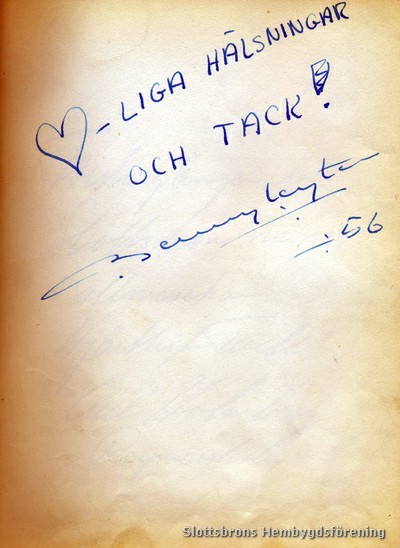 ♡-LIGA HÄLSNINGAR
OCH TACK!
56
Slottsbrons Hembygdsförening